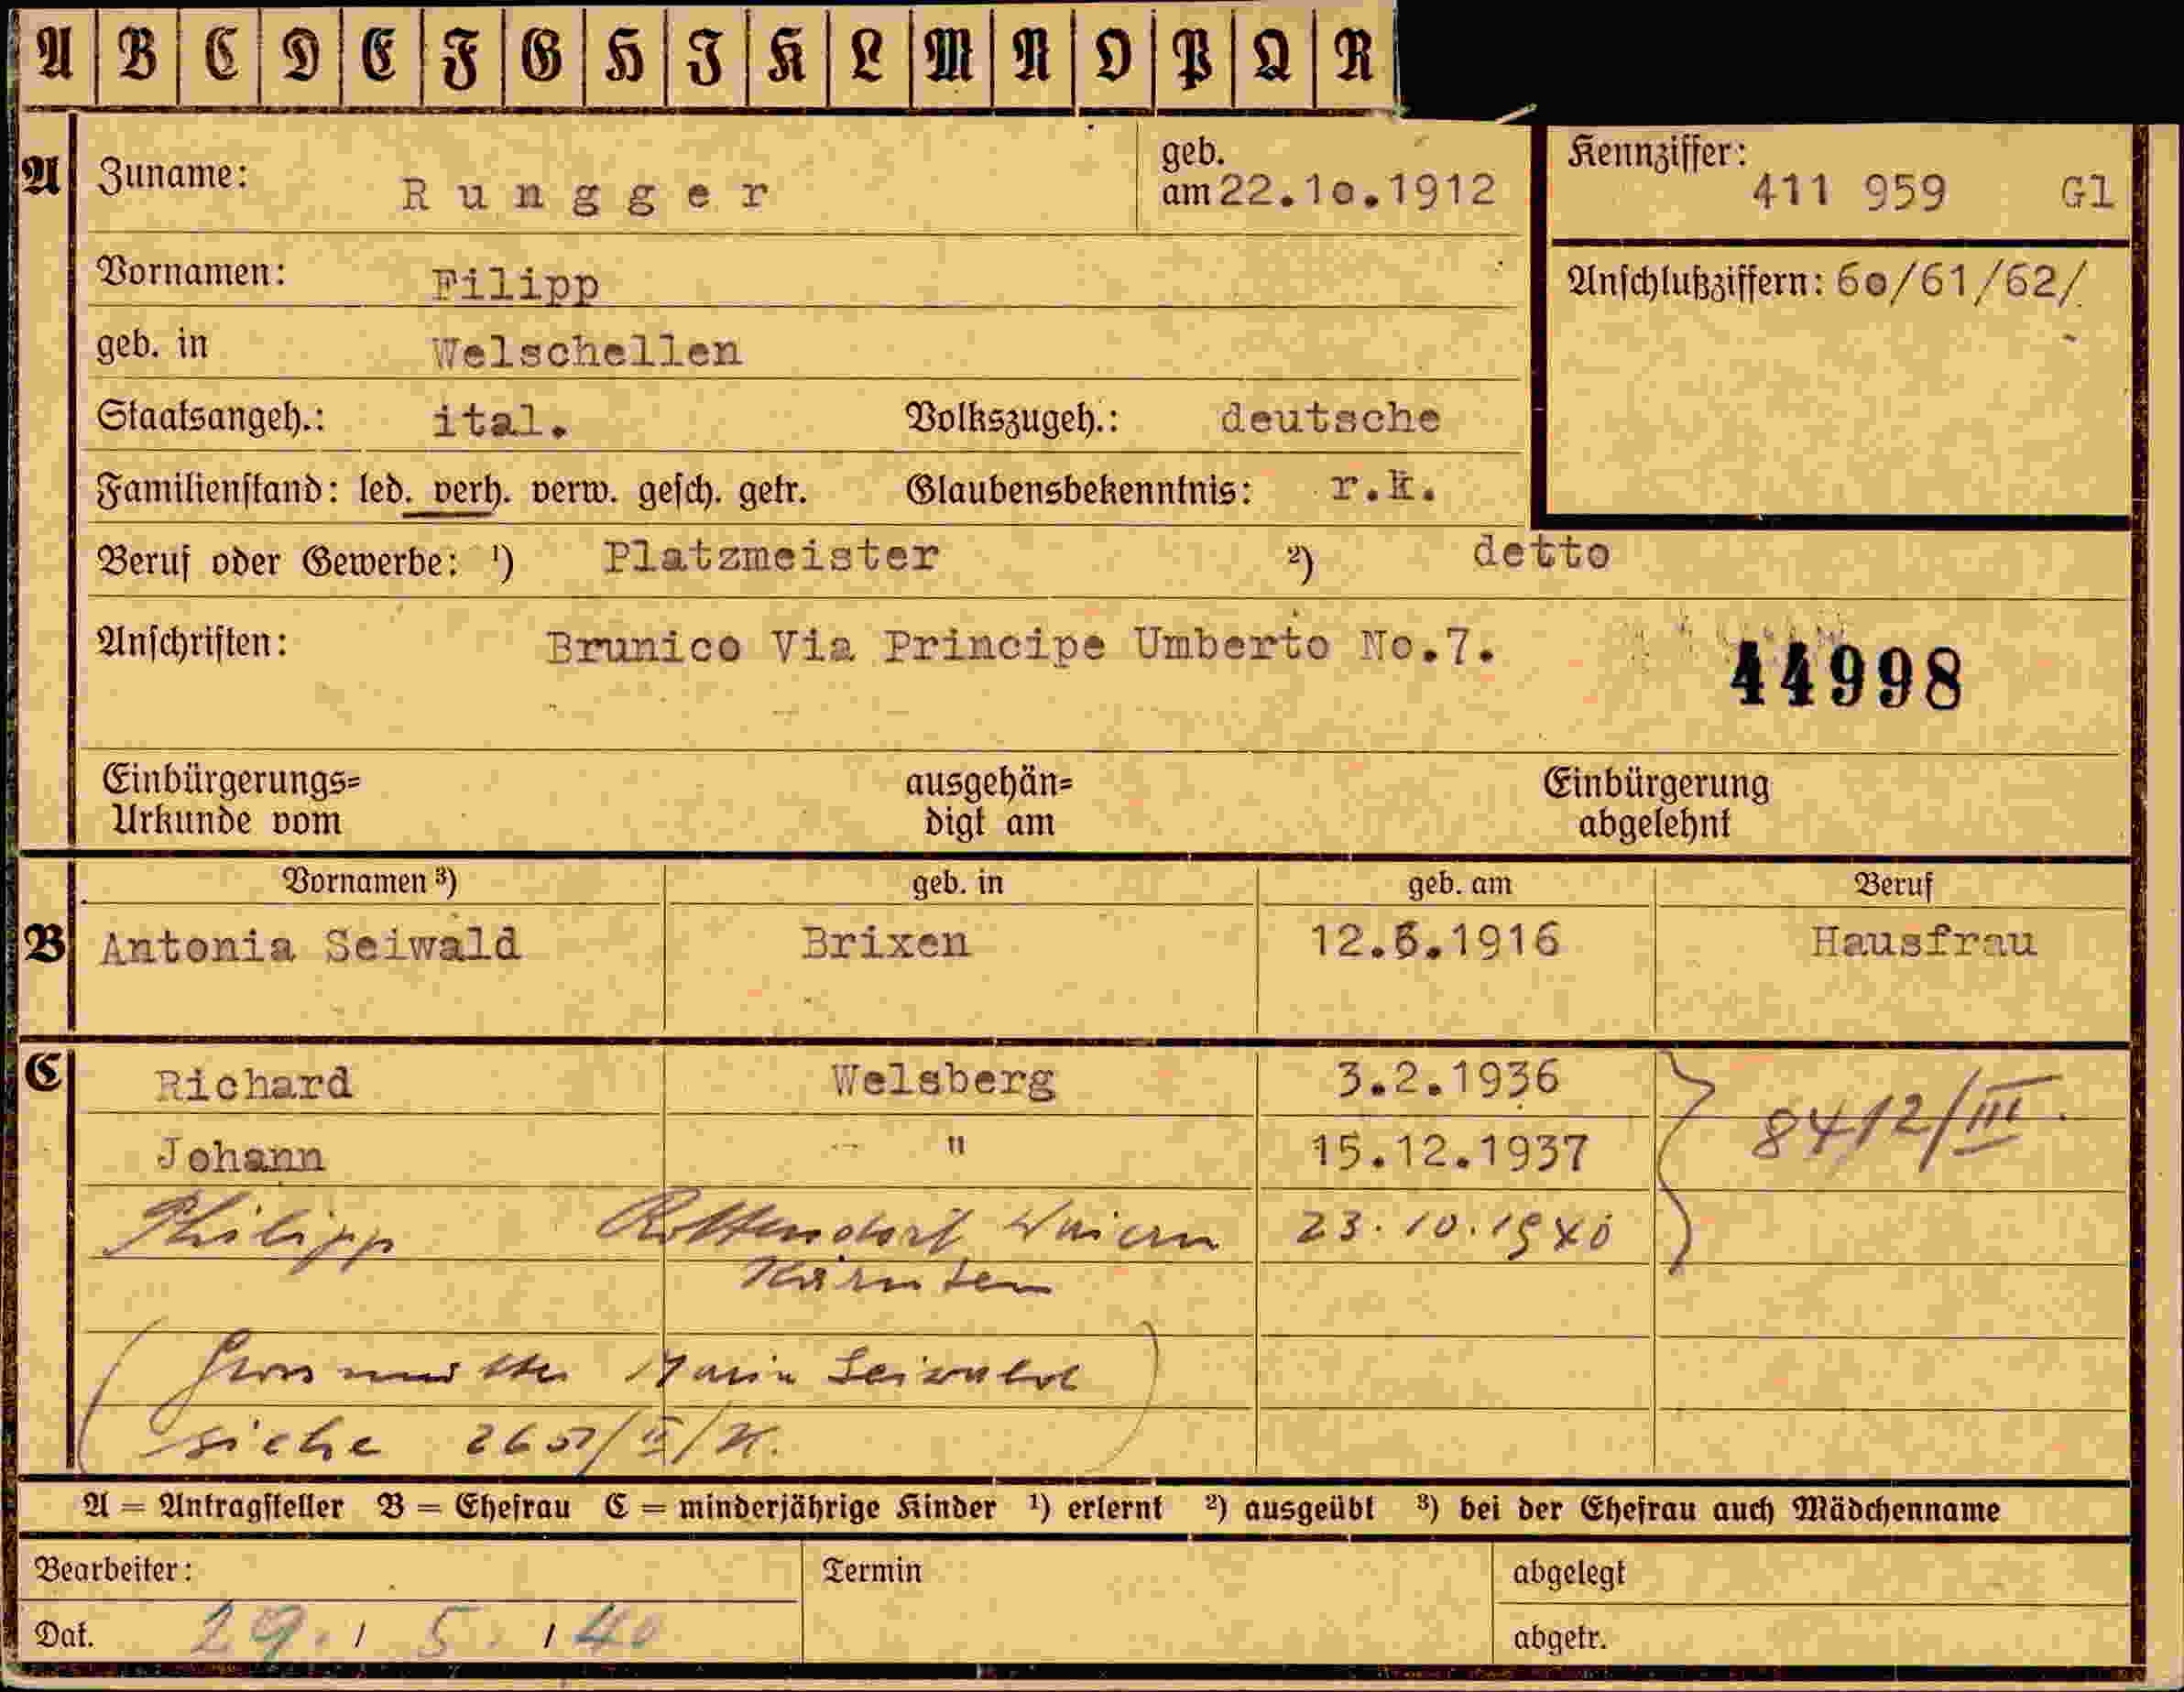 A B C D E F G H J K L M N O P Q R
A Zuname: Rungger geb. am 22.10.1912 Kennziffer: 411 959 Gl
Vornamen: Filipp Anschlußziffern: 60/61/62/
geb. in Welschellen
Staatsangeh.: ital. Volkszugeh.: deutsche
Familienstand: led. verh. verw. gesch. getr. Glaubensbekenntnis: r.k.
Beruf oder Gewerbe: 1) Platzmeister 2) detto
Anschriften: Brunico Via Principe Umberto No.7. 44998
Einbürgerungs= ausgehän= Einbürgerung
Urkunde vom digt am abgelehnt
Vornamen 3) geb. in geb. am Beruf
B Antonia Seiwald Brixen 12.6.1916 Hausfrau
C Richard Welsberg 3.2.1936
Johann " 15.12.1937 8412/III.
Philipp Rottendorf Waiern 23.10.1940
Kärnten
(Grossmutter Maria Seiwald)
siehe
A = Antragsteller B = Ehefrau C = minderjährige Kinder 1) erlernt 2) ausgeübt 3) bei der Ehefrau auch Mädchenname
Bearbeiter: Termin abgelegt
Dat. 29. / 5. / 40 abgetr.